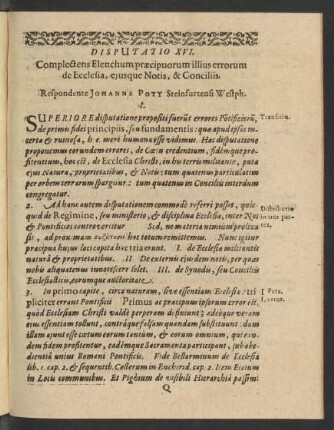 DISPUTATIO XVI.
Complectens Elenchum præcipuorum illius errorum
de Ecclesia, ejusque Notis, & Conciliis.
Respondente JOHANNE POTT Steinfurtensi Westph.
1.
SUPERIORE disputatione propositi fuerūt errores Pontificiorū,
de primis fidei principiis, seu fundamentis: quæ apud ipsos in-
certa & ruinosa, h. e. merè humana esse vidimus. Hac disputatione
proponemus eorundem errores, de Cœtu credentium, fidemque pro-
fitentium, hoc est, de Ecclesia Christi, in his terris militante, puta
ejus Natura, proprietatibus, & Notis: tum quatenus particulatim
per orbem terrarum spargitur: tum quatenus in Conciliis interdum
congregatur.
Transitio.
2. Ad hanc autem disputationem commodè referri posset, quic-
quid de Regimine, seu ministerio, & disciplina Ecclesiæ, inter Nos
& Pontificios controvertitur Sed, ne materia nimium prolixa
sit, ad proximam hoc totum remittemus. Nunc igitur
præcipua hujus loci capita hæc tria erunt. I. de Ecclesia militantis
natura & proprietatibus. II. De externis ejusdem notis, per quas
nobis aliquatenus innotescere solet. III. de Synodis, seu Conciliis
Ecclesiasticis, eorumque auctoritate
Distributio
in tres par-
tes.
3. In primo capite, circa naturam, sive essentiam Ecclesiæ tri
pliciter errant Pontificii Primus ac præcipuus ipsorum error est,
quòd Ecclesiam Christi valdè perperam definiunt; adeóque veram
ejus essentiam tollunt, contráque falsam quandam substituunt: dum
illam ajunt esse cœtum eorum tantùm, & eorum omnium, qui ean-
dem fidem profitentur, eadémque Sacramenta participant, sub obe-
dientia unius Romani Pontificis. Vide Bellarminum de Ecclesia
lib. 1. cap. 2. & sequentib. Costerum in Enchirid. cap. 2. Item Eccium
in Locis communibus. Et Pighium de visibili Hierarchiâ passim:
I. Pars.
Q